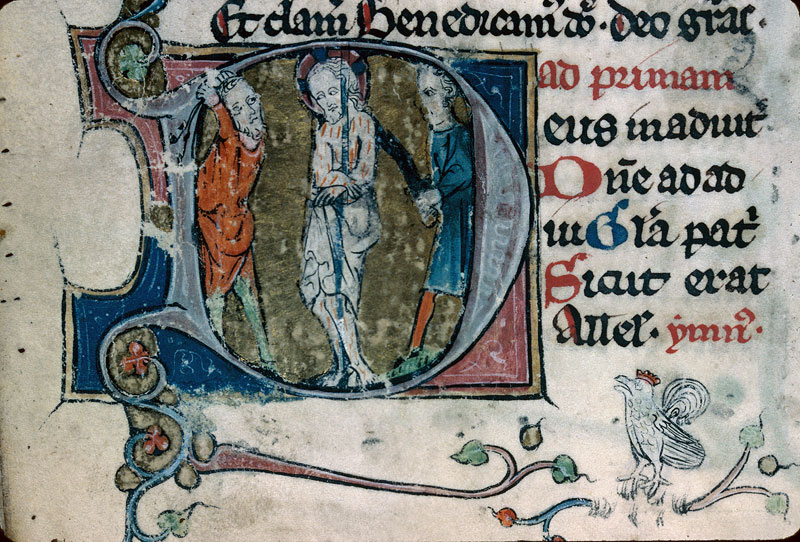 Et clam̄ Benedicam᷒ dō · deo gr̄as ·
ad primam
D eus in adiut᷒
Dn̄e ad ad
iu Gl̄a pat᷒
Sicut erat
All'el · ymn᷒ ·